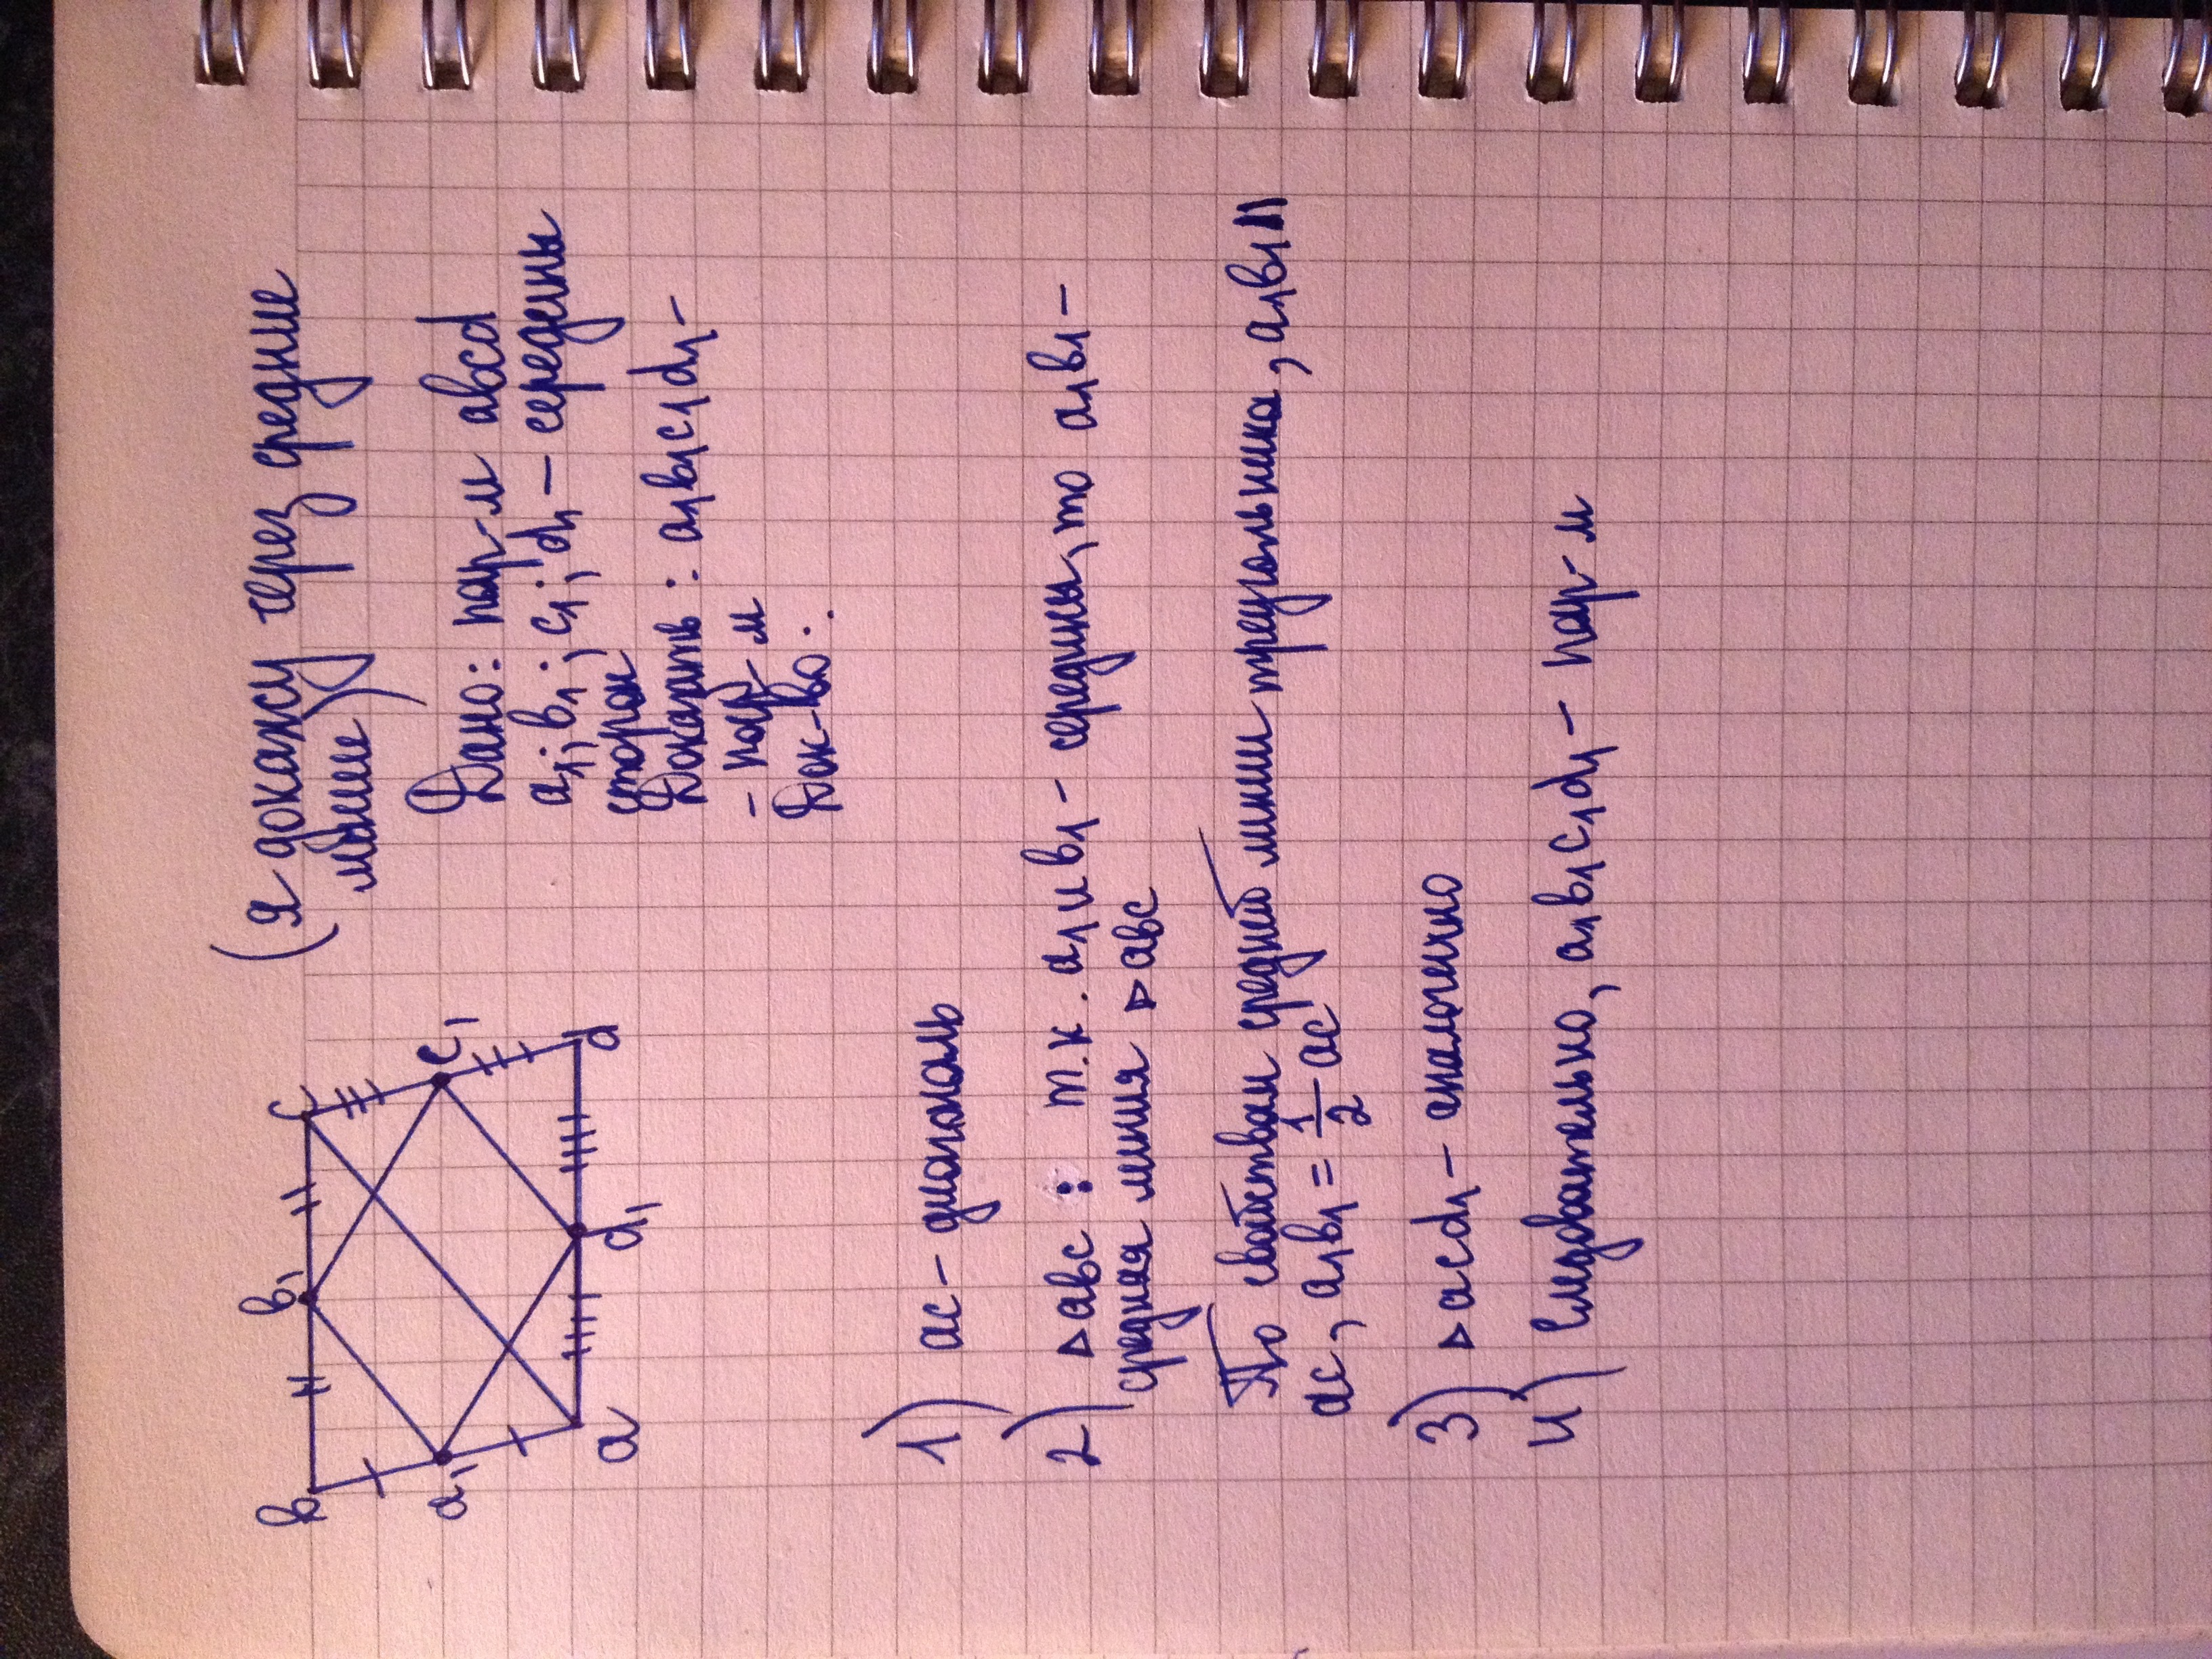 (я докажу через средние
линии)
Дано: пар-м авсd
a₁; в₁; c₁; d₁ - середины
сторон
Доказать: a₁в₁c₁d₁-
- пар-м
Док-во:
в
в₁
с
a₁
c₁
a
d₁
d
1) ac - диагональ
2) ▷авс : т.к. a₁ и в₁ - середины, то a₁в₁ -
средняя линия ▷авс
По свойствам средней линии треугольника, a₁в₁ ||
ac, a₁в₁ = 1/2 ac
3) ▷acd₁ - аналогично
4) Следовательно, a₁в₁c₁d₁ - пар-м